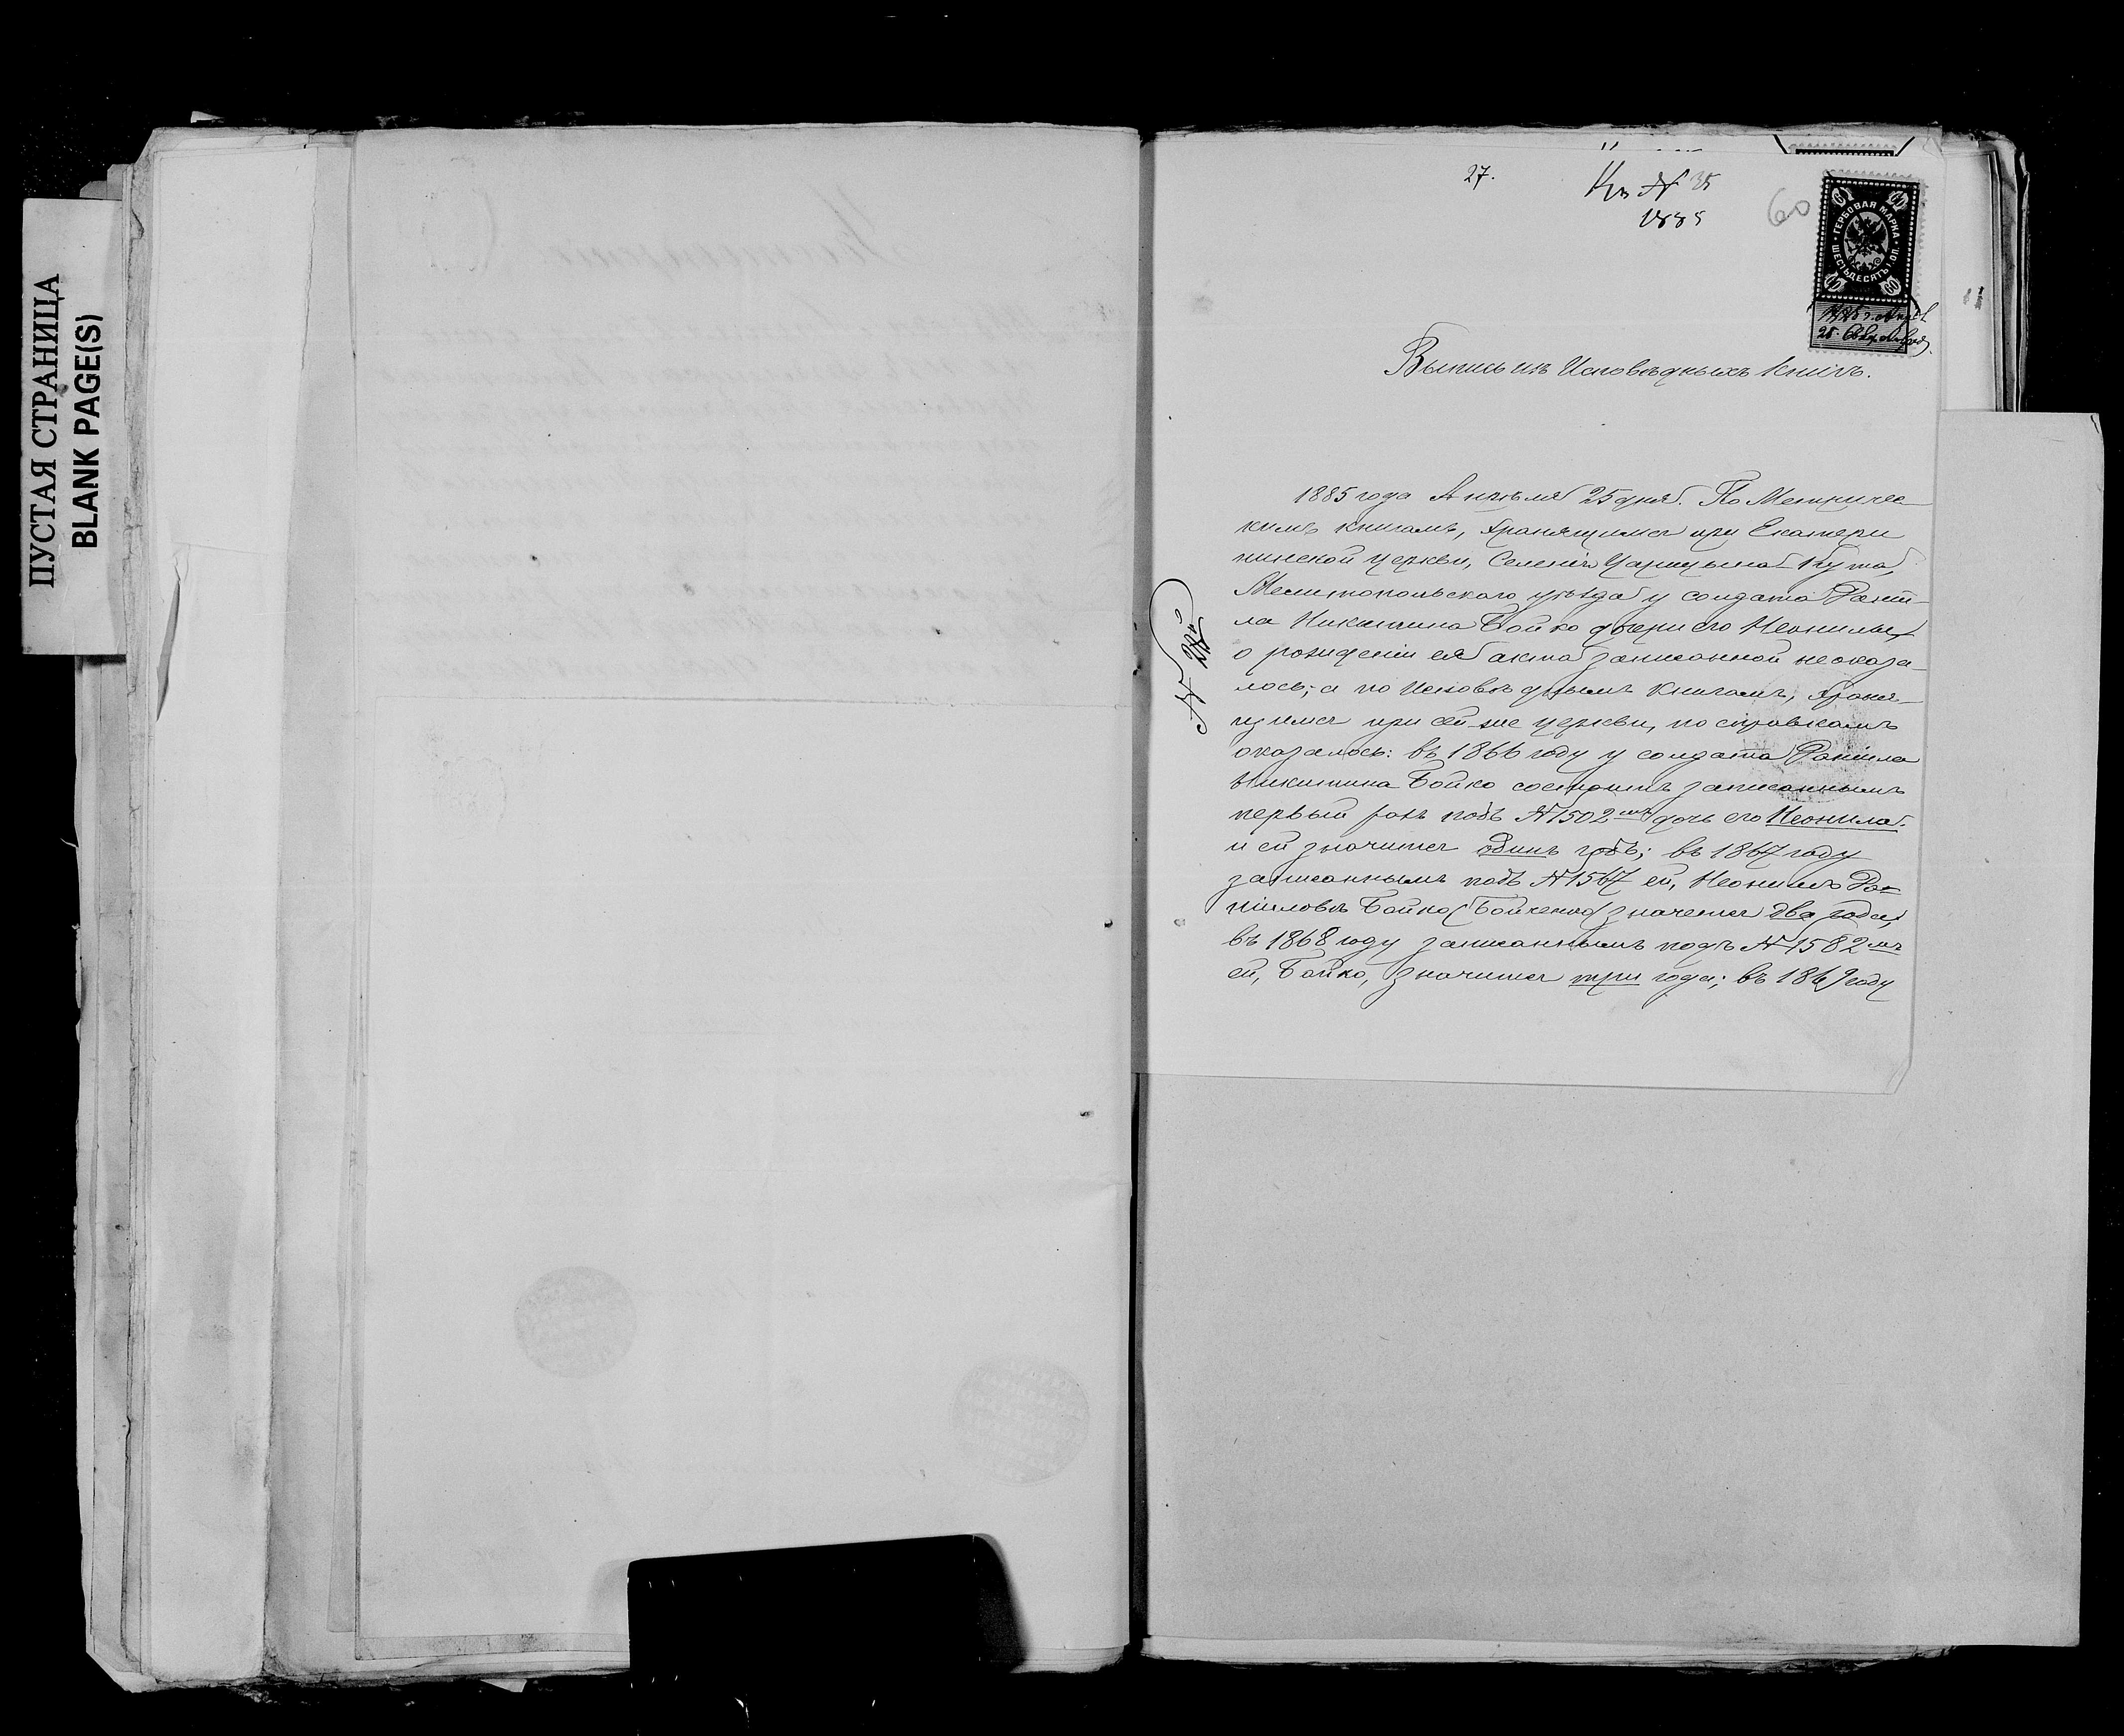 ПУСТАЯ СТРАНИЦА
BLANK PAGE(S)
27.
Къ № 35
1885
60
ГЕРБОВАЯ МАРКА
ШЕСТЬДЕСЯТЪ КОП.
60
1885 г. Апрѣл.
25.
Выпись изъ Исповѣдныхъ книгъ.
1885 года Апрѣля 25 дня. По Метричес-
кимъ книгамъ, хранящимся при Екатери
нинской церкви, Селенія Царицына-Кута,
Мелитопольскаго уѣзда у солдата Дании-
ла Никитина Бойко дочери его Неонилы
о рожденіи ея акта записанной не оказа-
лось; а по Исповѣднымъ книгамъ, храня-
щимся при сей-же церкви, по справкамъ
оказалось: въ 1866 году у солдата Даніила
Никитина Бойко состоитъ записаннымъ
первый разъ подъ № 1502 мъ дочь его Неонила
и ей значится одинъ годъ; въ 1867 году
записаннымъ подъ № 1567 ей, Неонилѣ Да-
ниловѣ Бойко (Бойченко) значется два года;
въ 1868 году записаннымъ подъ № 1582 мъ
ей, Бойко, значится три года; въ 1869 году